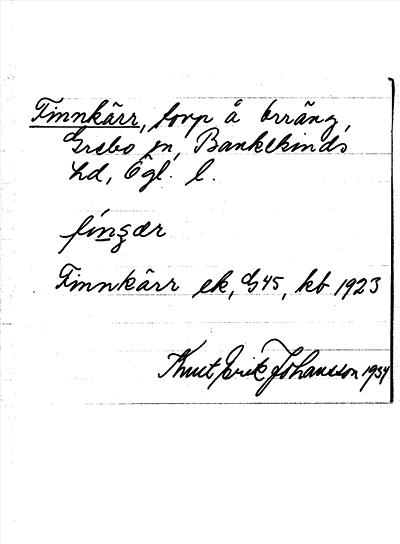 Finnkärr, torp å Orräng,
Grebo sn, Bankekinds
hd, Ögl. l.
fíngær
Finnkärr ek, G45, kb 1923
Knut Erik Johansson 1934